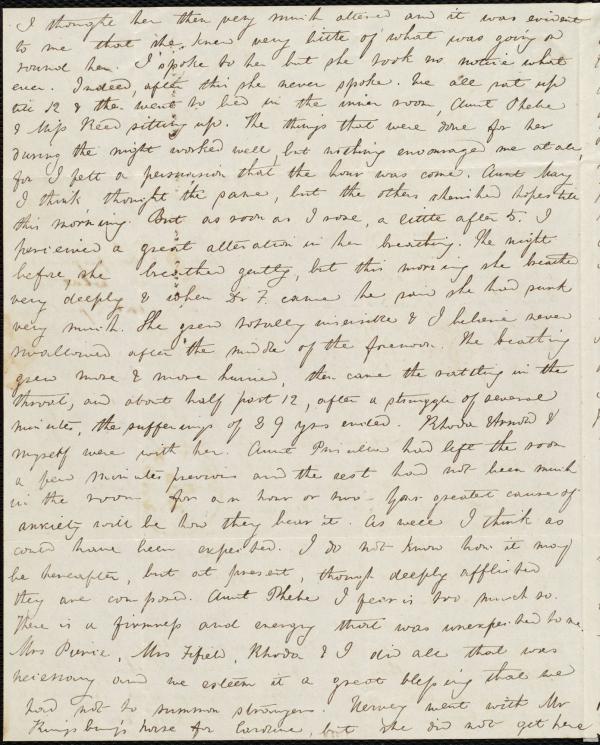 I thought her then very much altered and it was evident
to me that she knew very little of what was going on
round her. I spoke to her but she took no notice what
ever. Indeed, after this she never spoke. We all sat up
till 12 & then went to bed in the inner room, Aunt Phebe
& Miss Reed sitting up. The things that were done for her
during the night worked well, but nothing encouraged me at all,
for I felt a persuasion that the hour was come. Aunt Mary
I think thought the same, but the others cherished hopes till
this morning. But as soon as I rose, a little after 5. I
perceived a great alteration in her breathing. The night
before, she breathed gently, but this morning she breathed
very deeply & when Dr F. came he said she had sunk
very much. She grew totally insensible & I believe never
swallowed after the middle of the forenoon. The breathing
grew more & more hurried, then came the rattling in the
throat, and about half past 12, after a struggle of several
minutes, the sufferings of 39 yrs ended. Rhoda Arnold &
myself were with her. Aunt Priscilla had left the room
a few minutes previous and the rest had not been much
in the room for an hour or two - Your greatest cause of
anxiety will be how they bear it. As well I think as
could have been expected. I do not know how it may
be hereafter, but at present, though deeply afflicted
they are composed. Aunt Phebe I fear is too much so.
There is a firmness and energy that was unexpected to me.
Mrs Pierce, Mrs Fifield, Rhoda & I did all that was
necessary and we esteem it a great blessing that we
had not to summon strangers. Hervey went with Mr
Kingsbury's horse for Caroline, but she did not get here